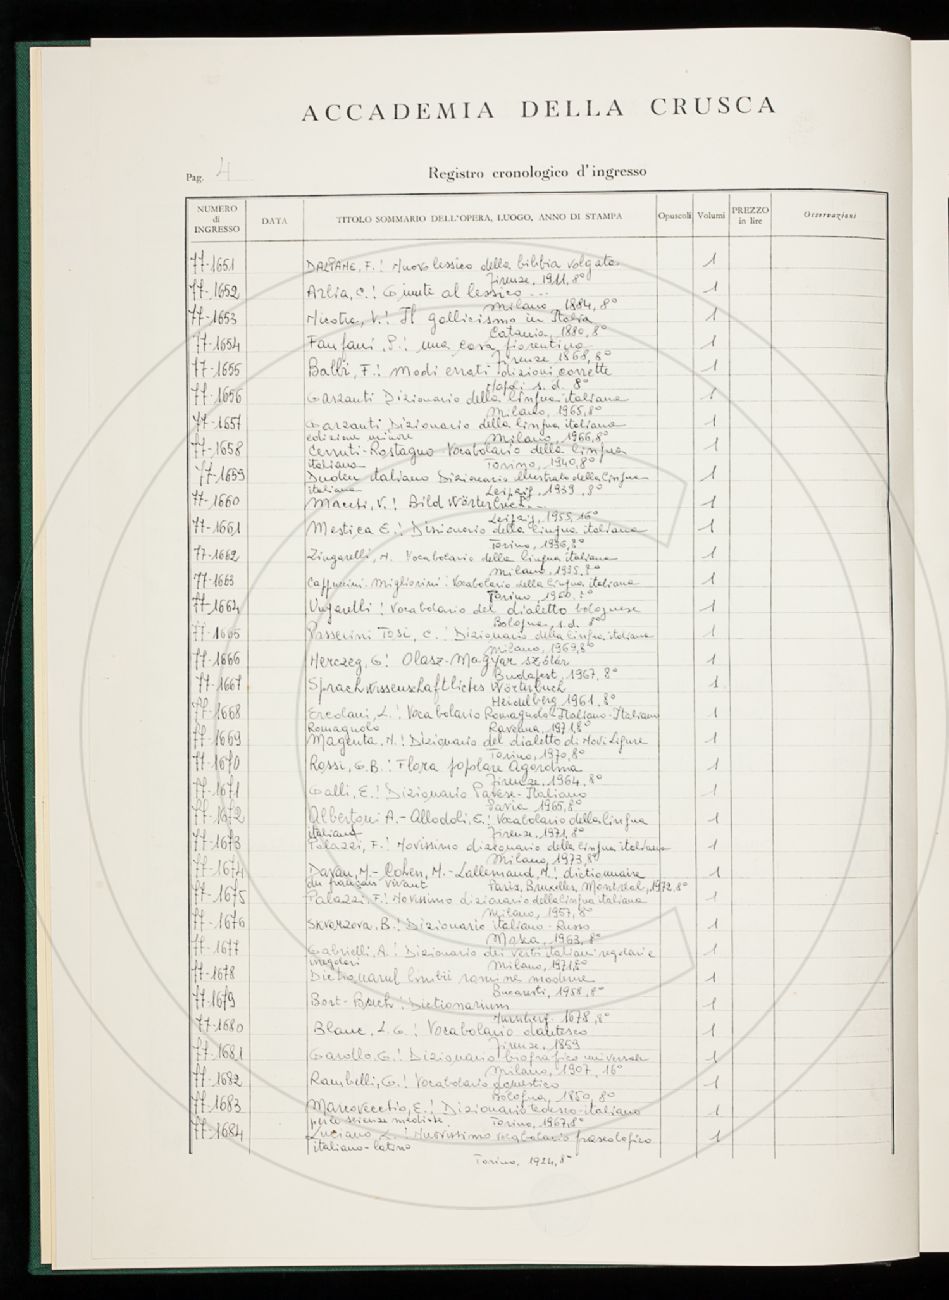 ACCADEMIA DELLA CRUSCA
Pag. 4
Registro cronologico d'ingresso
NUMERO di INGRESSO DATA TITOLO SOMMARIO DELL'OPERA, LUOGO, ANNO DI STAMPA Opuscoli Volumi PREZZO in lire Osservazioni
77-1651 F.: Nuovo lessico della bibbia volgata 1
Firenze, 1911, 8°
77-1652 Arlia, C.: Giunte al lessico ... 1
Milano, 1884, 8°
77-1653 Nicotra, V.: Il gallicismo in Italia 1
Catania, 1880, 8°
77-1654 Fanfani, P.: una casa fiorentina 1
Firenze 1868, 8°
77-1655 Balbi, F.: Modi errati dizioni corrette 1
Napoli s.d. 8°
77-1656 Garzanti Dizionario della lingua italiana 1
Milano, 1965, 8°
77-1657 Garzanti Dizionario della lingua italiana 1
edizione minore Milano, 1966, 8°
77-1658 Cerruti-Rostagno Vocabolario della lingua 1
italiana Torino, 1940, 8°
77-1659 Duden italiano Dizionario illustrato della lingua 1
italiana Leipzig, 1939, 8°
77-1660 Macchi, V.: Bild Wörterbuch... 1
Leipzig, 1955, 16°
77-1661 Mestica E.: Dizionario della lingua italiana 1
Torino, 1936, 8°
77-1662 Zingarelli, N. Vocabolario della lingua italiana 1
Milano, 1935, 8°
77-1663 Cappuccini. Migliorini: Vocabolario della lingua italiana 1
Torino, 8°
77-1664 Ungarelli: Vocabolario del dialetto bolognese 1
Bologna, s.d. 8°
77-1665 Passerini Tosi, C.: Dizionario della lingua italiana 1
Milano, 1969, 8°
77-1666 Herczeg, G: Olasz-Magyar szótár 1
Budapest, 1967, 8°
77-1667 Sprachwissenschaftliches Wörterbuch 1
Heidelberg 1961, 8°
77-1668 Ercolani, L.: Vocabolario Romagnolo-Italiano-Italiano 1
Romagnolo Ravenna, 1971, 8°
77-1669 Magenta, N.: Dizionario del dialetto di Novi Ligure 1
Torino, 1970, 8°
77-1670 Rossi, G.B.: Flora popolare Agordina 1
Firenze, 1964, 8°
77-1671 Galli, E.: Dizionario Pavese-Italiano 1
Pavia 1965, 8°
77-1672 Albertoni A.-Allodoli, E.: Vocabolario della lingua 1
italiana Firenze, 1971, 8°
77-1673 Palazzi, F.: Novissimo dizionario della lingua italiana 1
Milano, 1973, 8°
77-1674 Davau, M.-Cohen, M.-Lallemand, M.: dictionnaire 1
du français vivant Paris, Bruxelles, Montréal, 1972, 8°
77-1675 Palazzi, F.: Novissimo dizionario della lingua italiana 1
Milano, 1957, 8°
77-1676 Skvorzova, B.: Dizionario italiano-Russo 1
Moska, 1963, 8°
77-1677 Gabrielli, A.: Dizionario dei verbi italiani regolari e 1
irregolari Milano, 1971, 8°
77-1678 Dictionarul limbii romîne moderne 1
Bucaresti, 1958, 8°
77-1679 Dictionarium 1
Nurnberg. 1678, 8°
77-1680 Blanc, L.G.: Vocabolario dantesco 1
Firenze, 1859
77-1681 Garollo, G.: Dizionario biografico universale 1
Milano, 1907, 16°
77-1682 Rambelli, G.: Vocabolario domestico 1
Bologna, 1850, 8°
77-1683 Marcovecchio, E.: Dizionario tedesco-italiano 1
per le scienze mediche. Torino, 1967, 8°
77-1684 Luciano L.: Nuovissimo vocabolario fraseologico 1
italiano-latino
Torino, 1924, 8°